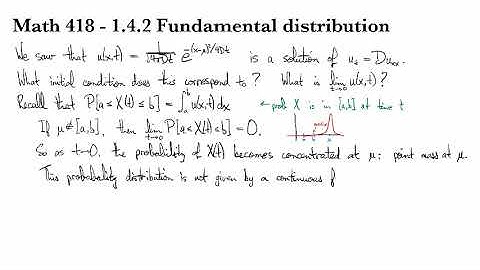 Math 418 - 1.4.2 Fundamental distribution
We saw that u(x,t) = 1/√(4πDt) e^(-(x-μ)²/4Dt) is a solution of u_t = Du_xx.
What initial condition does this correspond to? What is lim_(t→0) u(x,t)?
Recall that P[a≤X(t)≤b] = ∫_a^b u(x,t)dx ← prob X is in [a,b] at time t
If μ∉[a,b], then lim_(t→0) P[a≤X(t)≤b] = 0.
So as t→0, the probability of X(t) becomes concentrated at μ: point mass at μ.
This probability distribution is not given by a continuous f